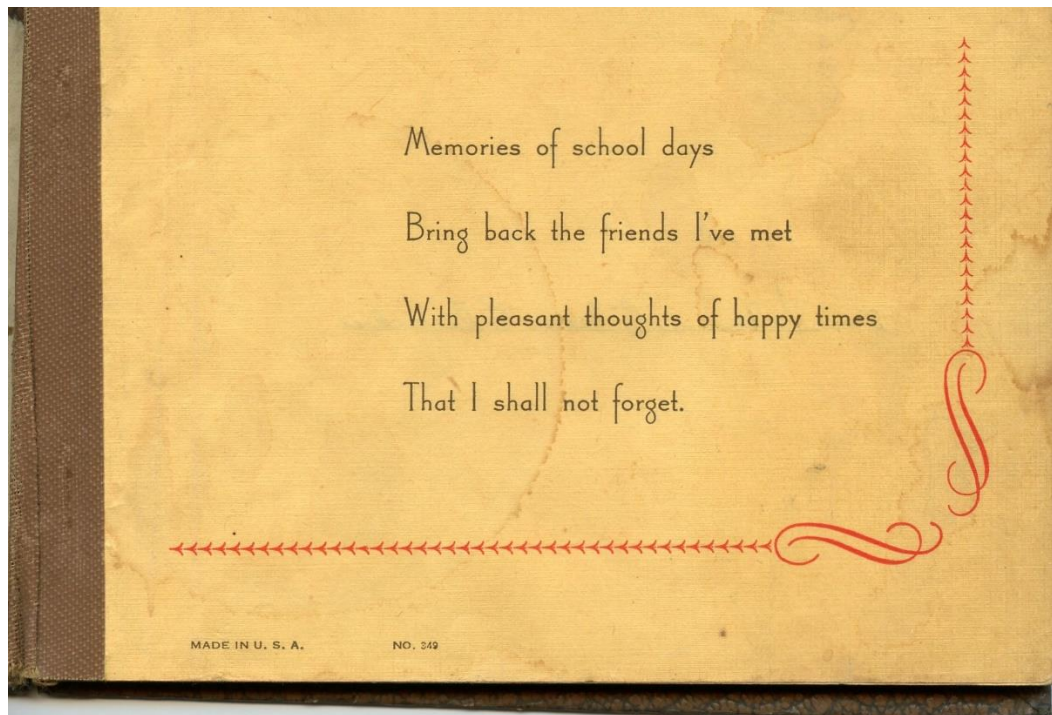 Memories of school days
Bring back the friends I've met
With pleasant thoughts of happy times
That I shall not forget.
MADE IN U. S. A. NO. 349